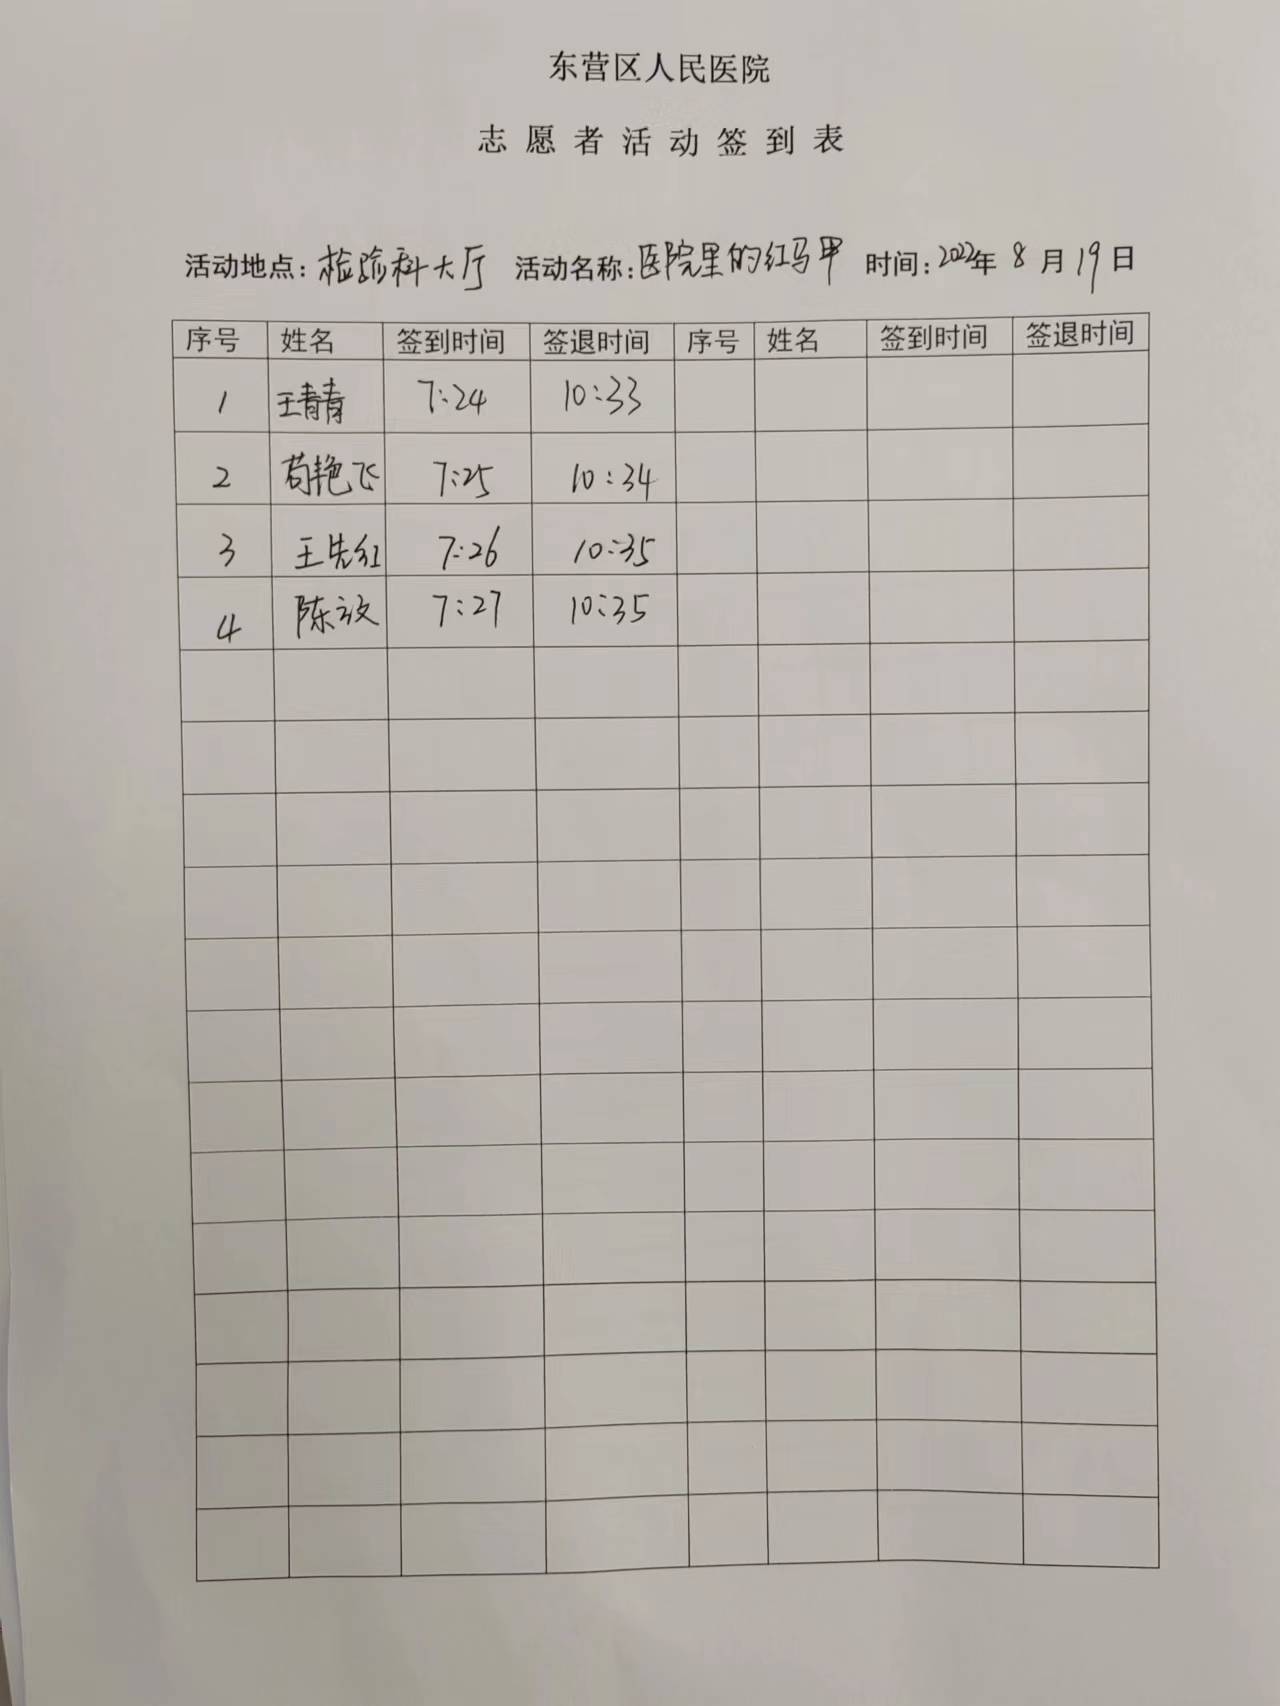 东营区人民医院
志愿者活动签到表
活动地点：检验科大厅 活动名称：医院里的红马甲 时间：2022年8月19日
序号 姓名 签到时间 签退时间 序号 姓名 签到时间 签退时间
1 王青青 7:24 10:33
2 苟艳飞 7:25 10:34
3 王先红 7:26 10:35
4 陈 7:27 10:35